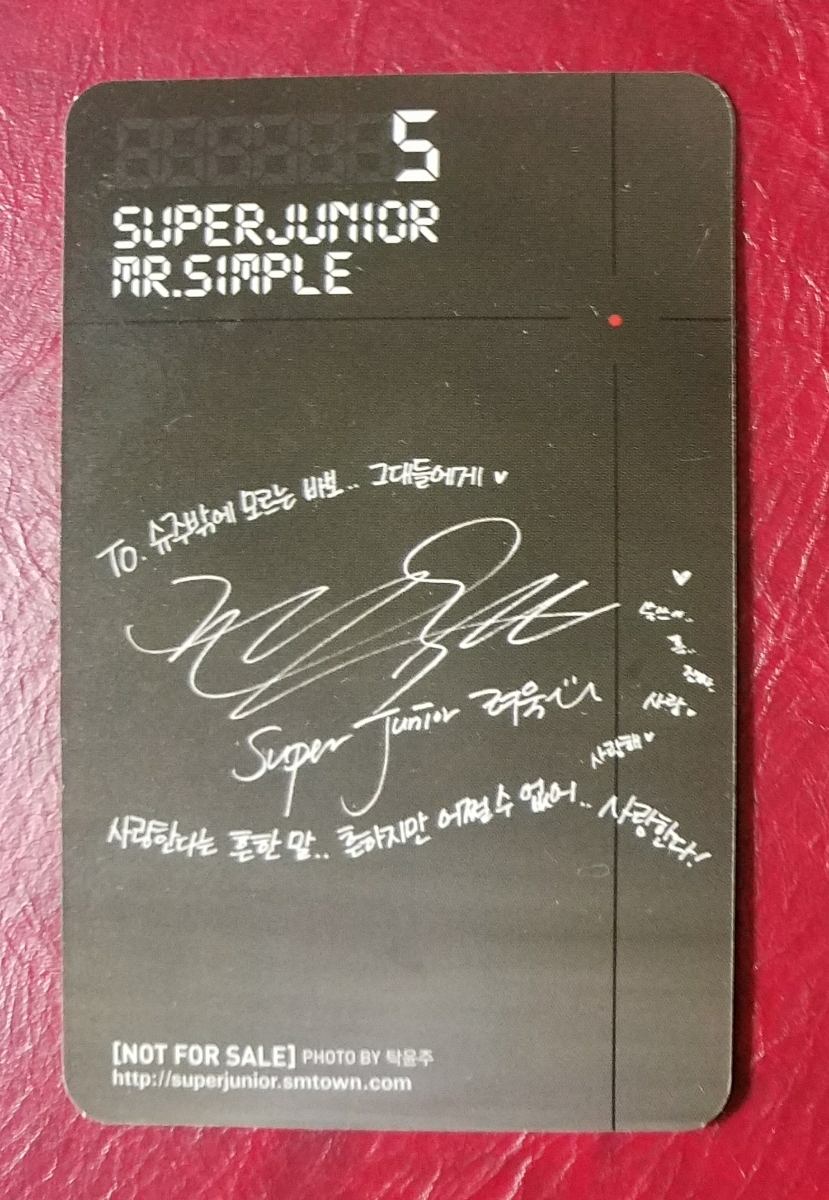 5
SUPERJUNIOR
MR.SIMPLE
To. 슈주밖에 모르는 바보.. 그대들에게 ♥
Super Junior 려욱
♥
흔..
진짜
사랑
사랑해♥
사랑한다는 흔한 말.. 흔하지만 어쩔 수 없어.. 사랑한다!
[NOT FOR SALE] PHOTO BY 탁윤주
http://superjunior.smtown.com